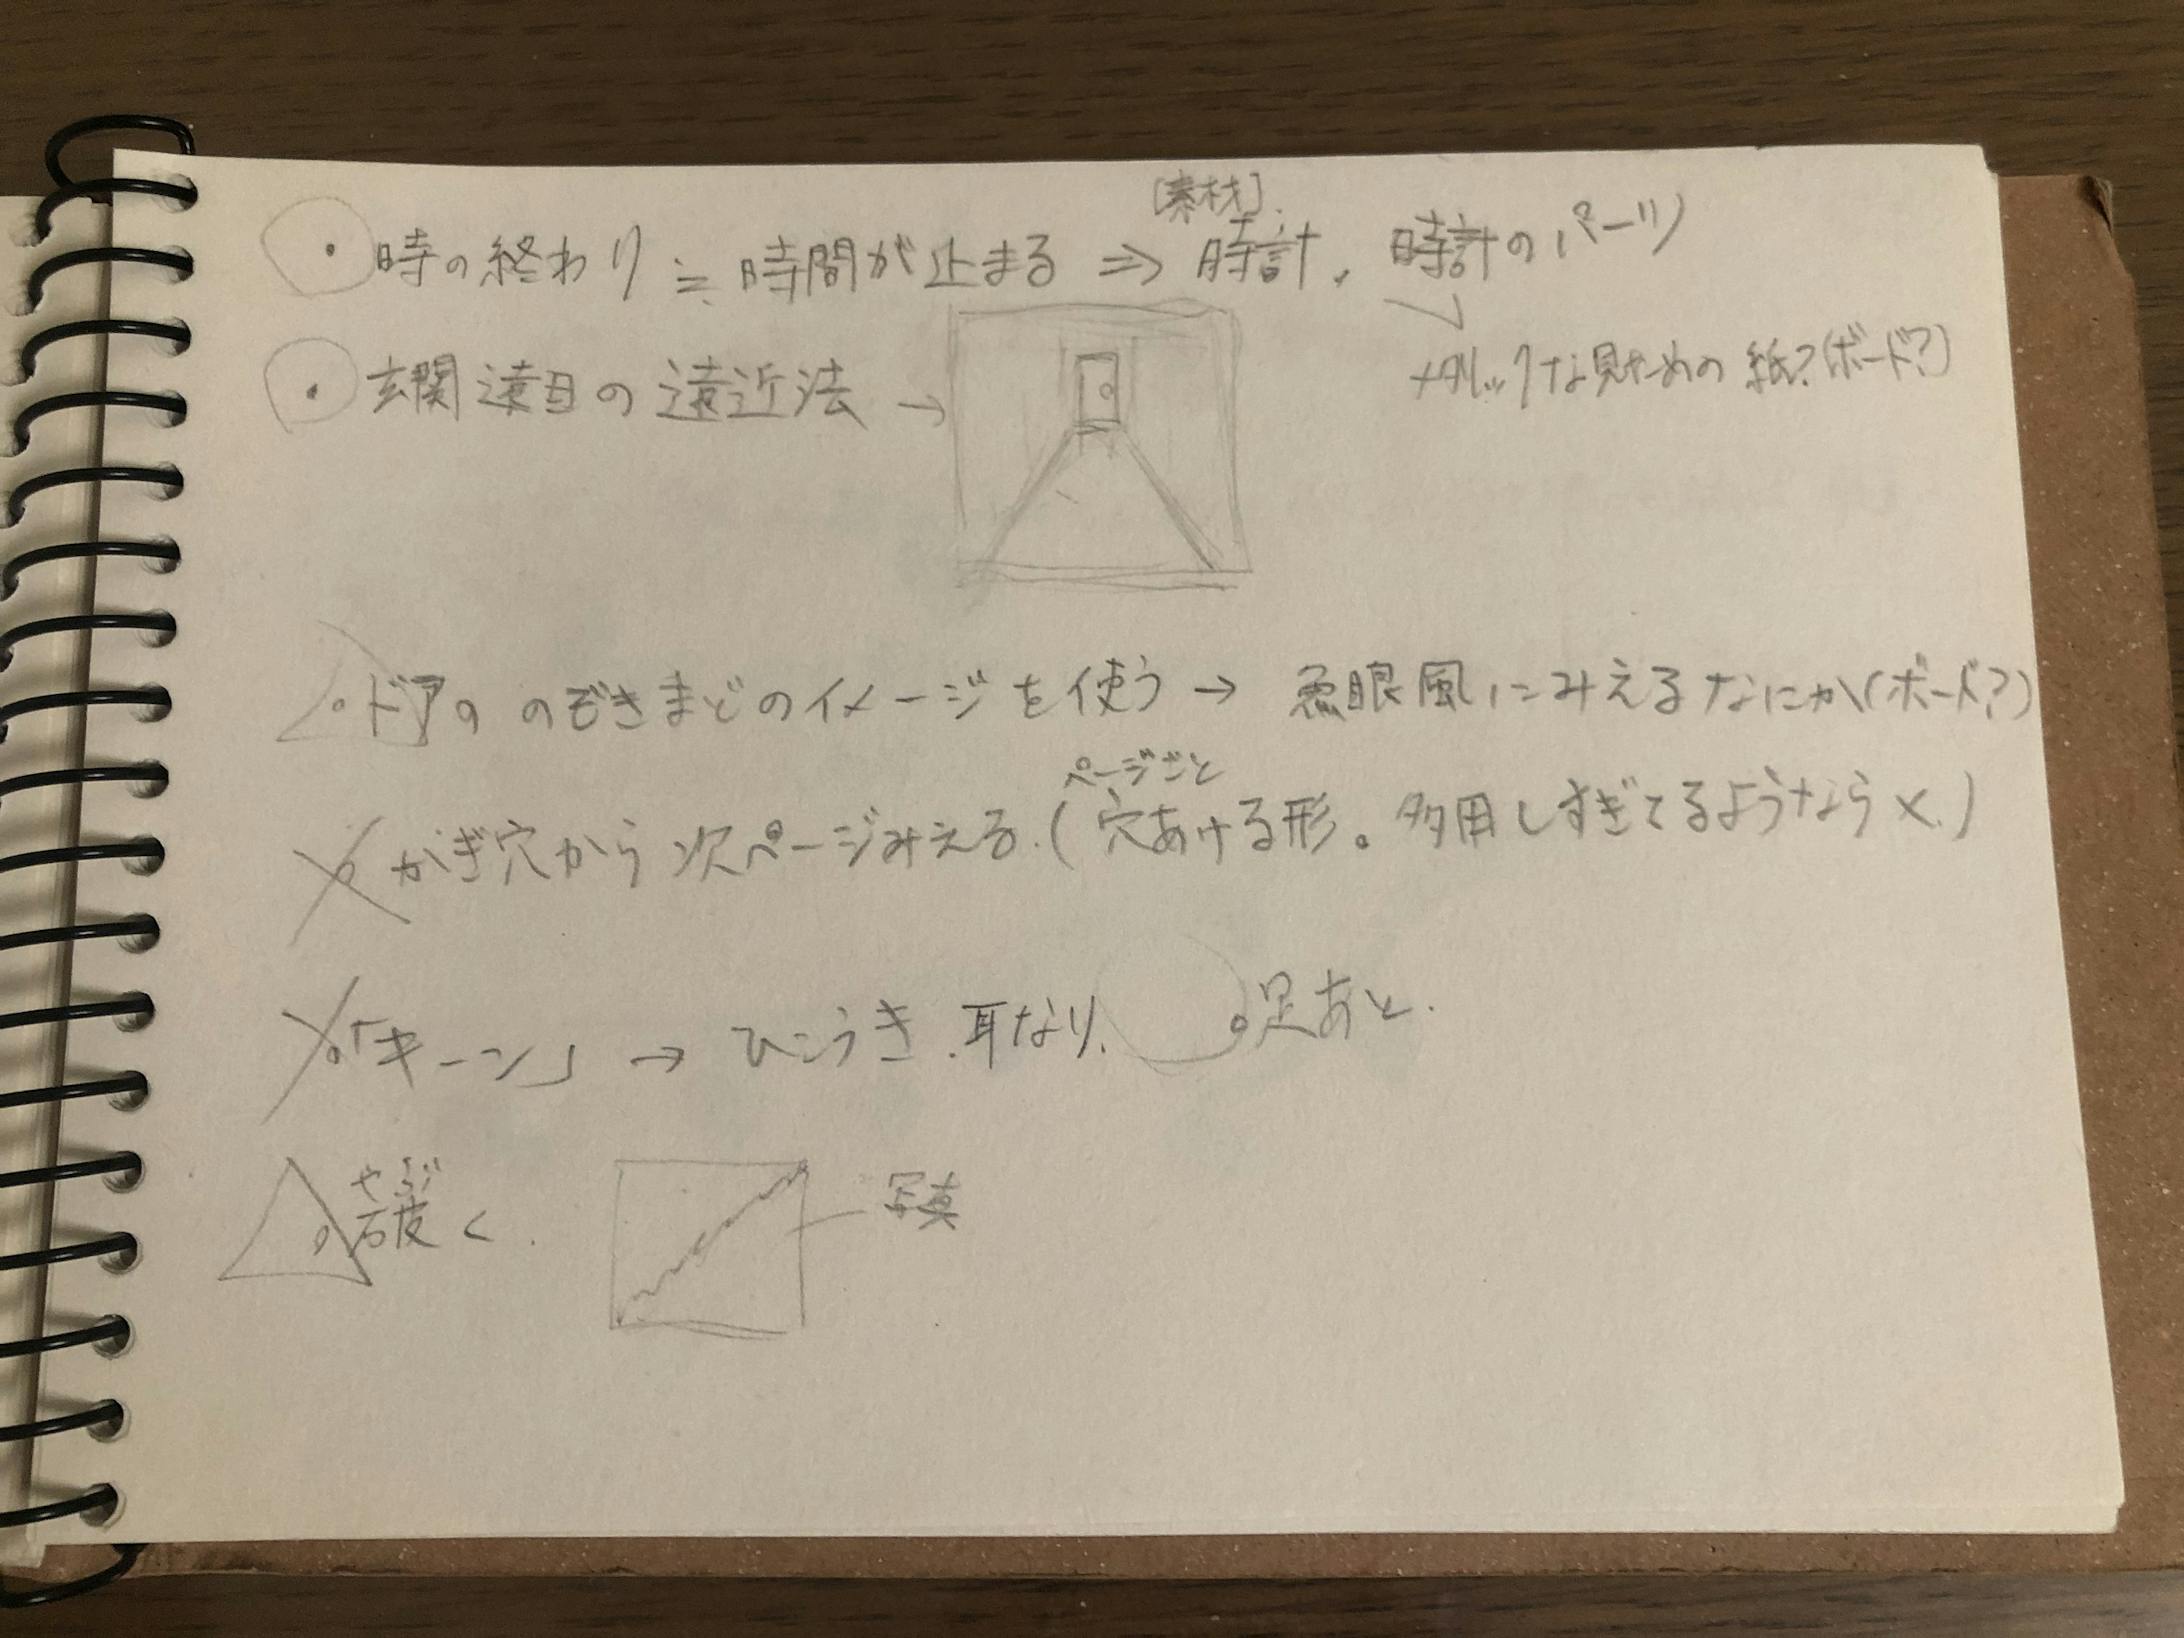 [素材]
・時の終わり ≒ 時間が止まる ⇒ 時計、時計のパーツ
メタリックな見ための紙?(ボード?)
・玄関遠目の遠近法 →
・ドアの のぞきまどのイメージを使う → 魚眼風にみえるなにか(ボード?)
ページごと
・かぎ穴から次ページみえる.(穴あける形。多用しすぎてるようなら×.)
・「キーン」 → ひこうき.耳なり. ・足あと.
やぶ
・破く. 写真